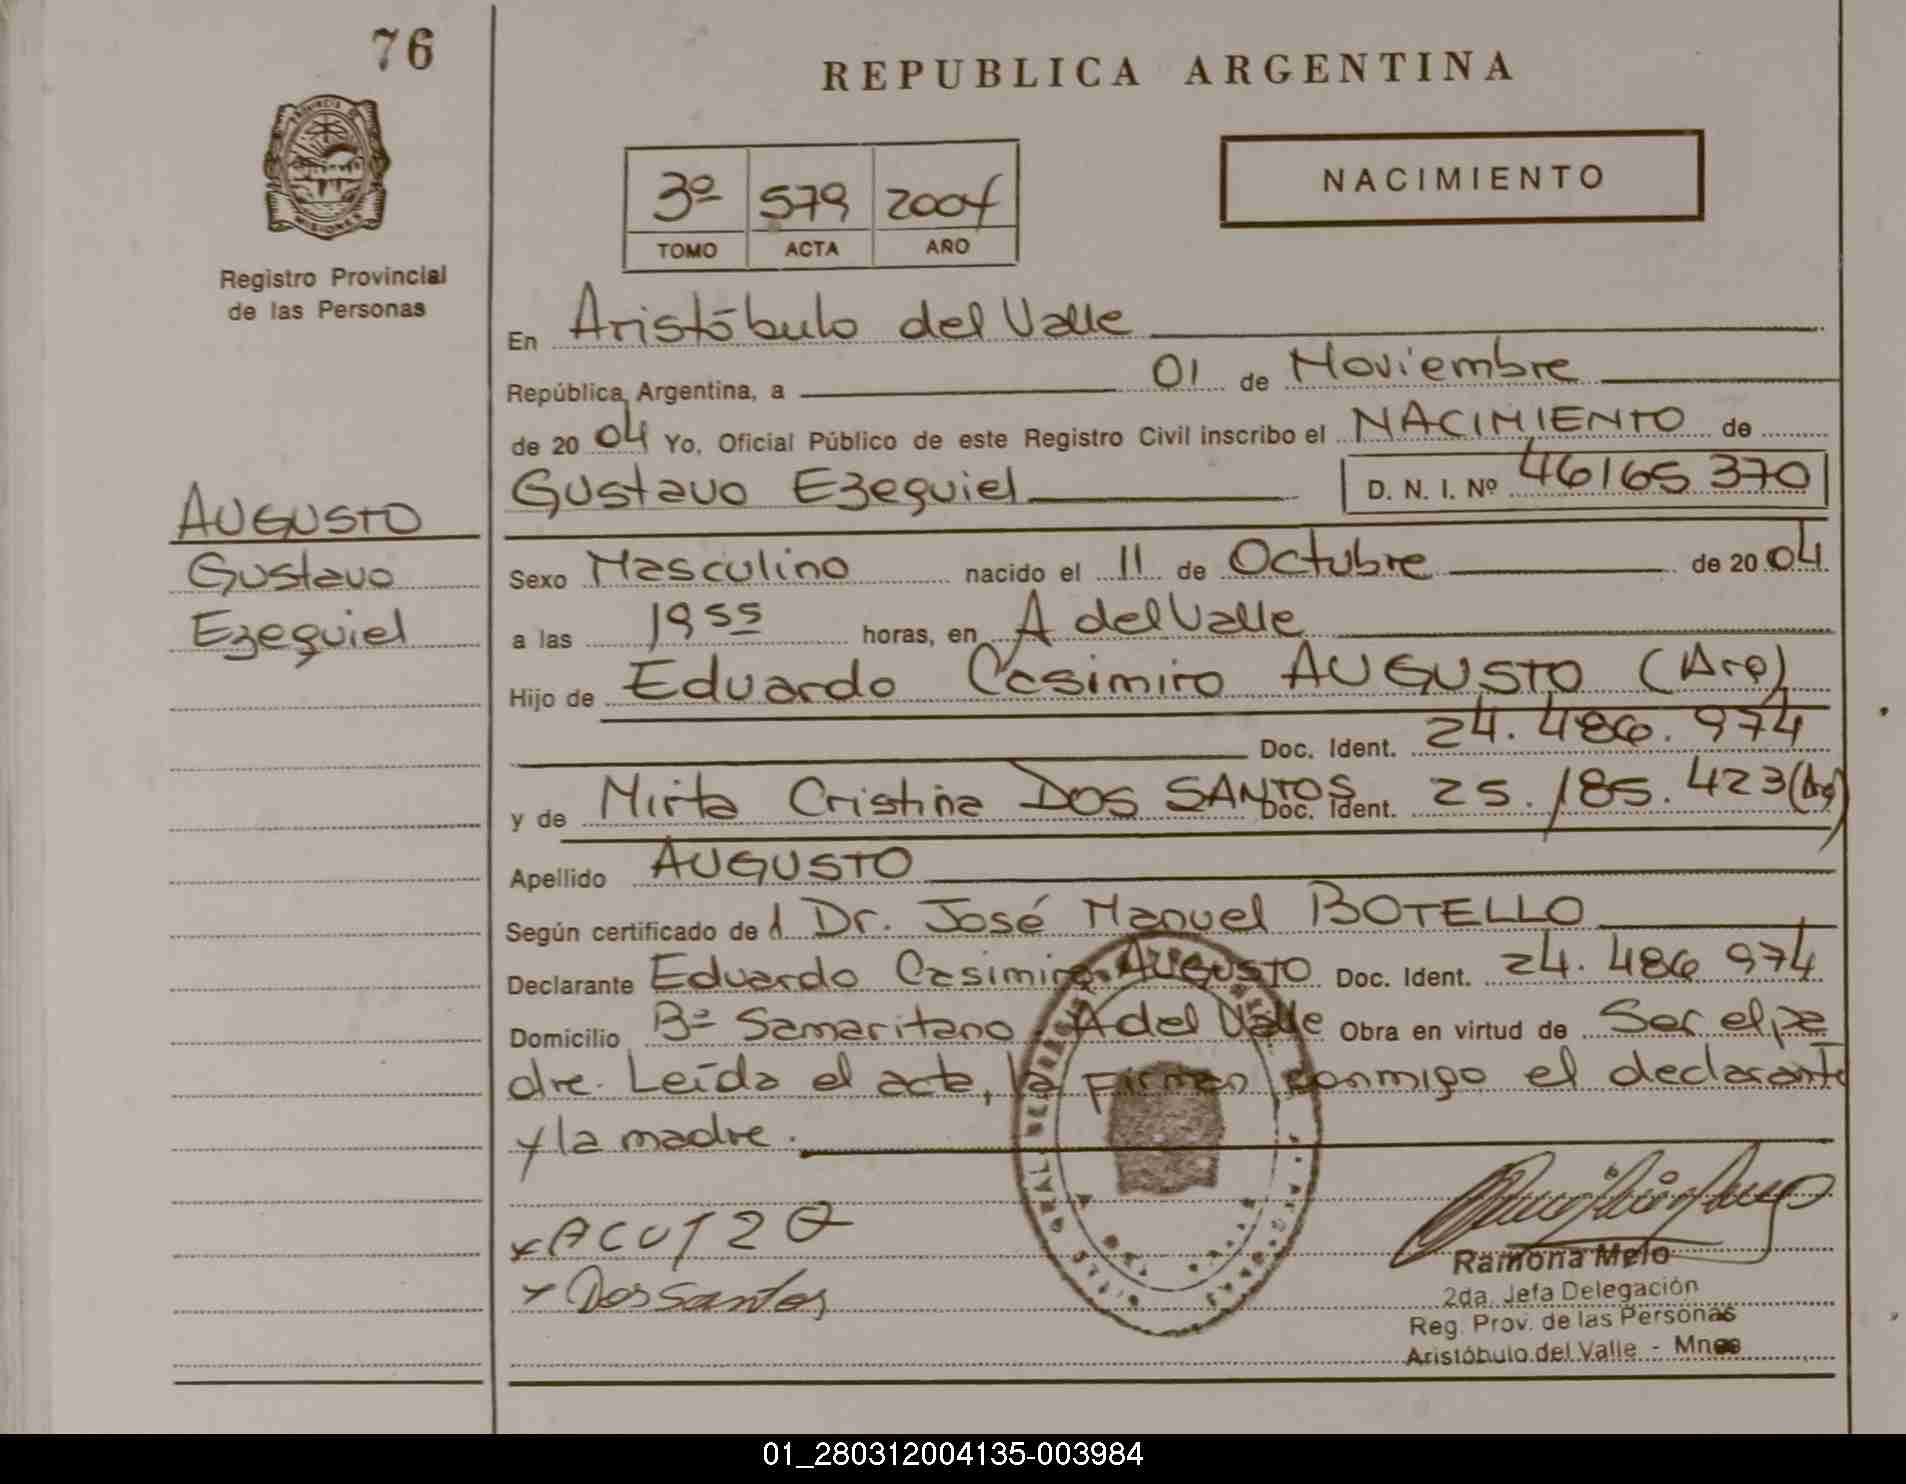 76
REPUBLICA ARGENTINA
PROVINCIA DE
MISIONES
Registro Provincial
de las Personas
3º 579 2004
TOMO ACTA AÑO
NACIMIENTO
En Aristóbulo del Valle
República Argentina, a 01 de Noviembre
de 2004 Yo, Oficial Público de este Registro Civil inscribo el NACIMIENTO de
Gustavo Ezequiel D. N. I. Nº 46165370
AUGUSTO
Gustavo
Ezequiel
Sexo Masculino nacido el 11 de Octubre de 2004.
a las 19 55 horas, en A del Valle
Hijo de Eduardo Casimiro AUGUSTO (Arg)
Doc. Ident. 24.486.974
y de Mirta Cristina DOS SANTOS Doc. Ident. 25.185.423 (Arg)
Apellido AUGUSTO
Según certificado de l Dr. José Manuel BOTELLO
Declarante Eduardo Casimiro AUGUSTO Doc. Ident. 24.486 974
Domicilio Bº Samaritano A del Valle Obra en virtud de Ser el pa
dre. Leída el acta, la firman conmigo el declarante
y la madre.
x ACUT2O
x Dos Santos
Ramona Melo
2da. Jefa Delegación
Reg. Prov. de las Personas
Aristóbulo del Valle - Mnes
01_280312004135-003984